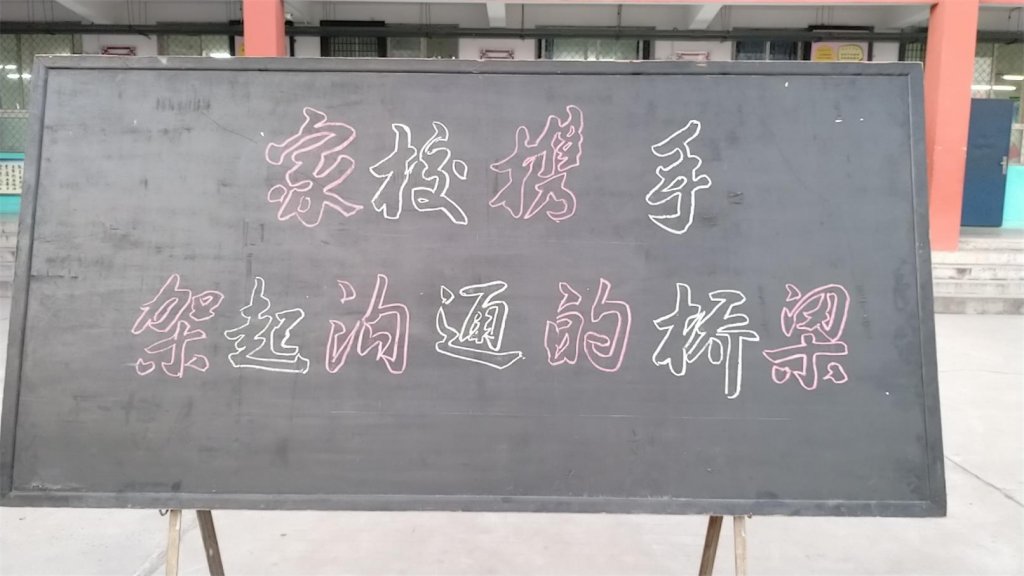 家校携手
架起沟通的桥梁